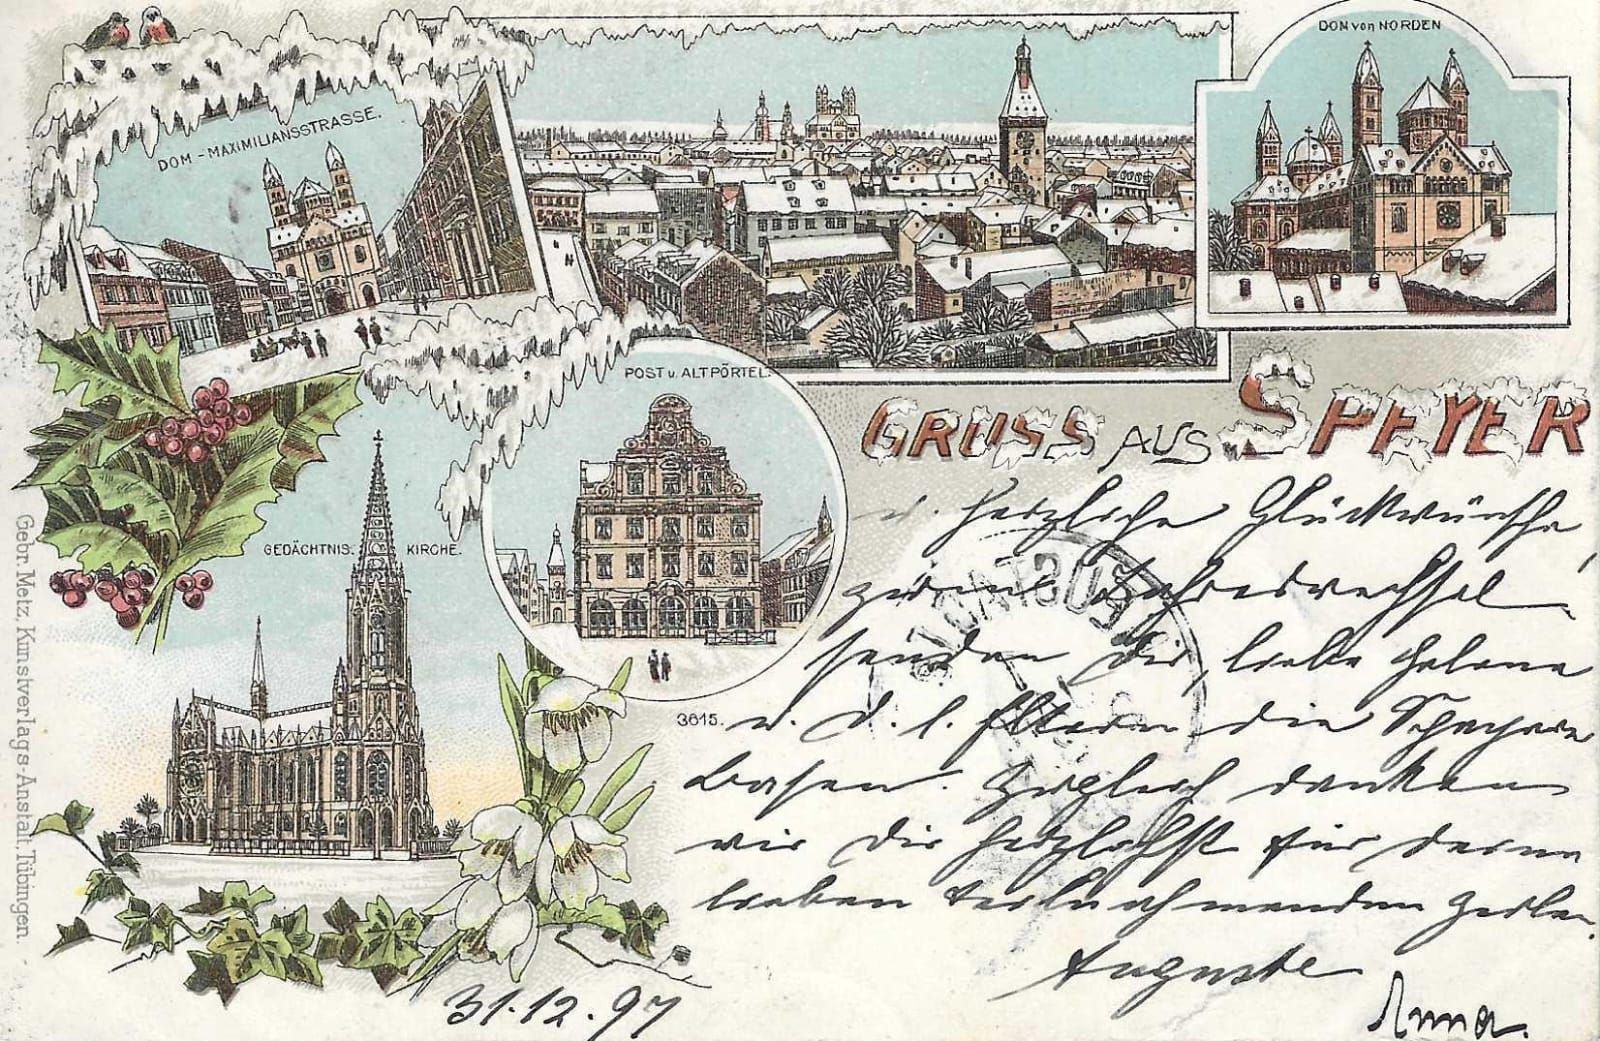 DOM-MAXIMILIANSSTRASSE.
DOM von NORDEN
POST u. ALTPÖRTEL.
GRUSS AUS SPEYER
GEDÄCHTNIS. KIRCHE.
3615.
Gebr. Metz, Kunstverlags-Anstalt, Tübingen.
u. herzliche Glückwünsche
zum Jahreswechsel
senden Dir, liebe Helene
u. d. l. Eltern die Speyerer
Basen. Zugleich danken
wir Dir herzlichst für Deine
lieben Zeilen.
Auguste
Anna.
31.12.97